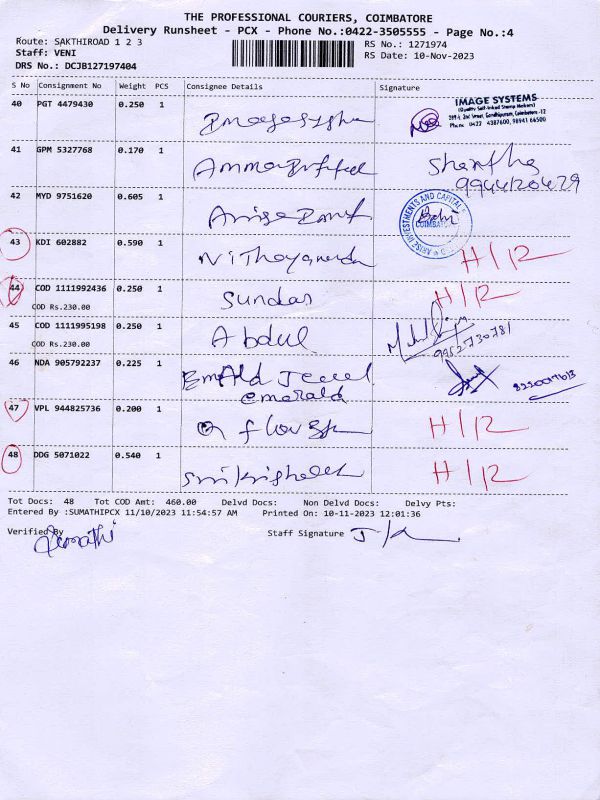 THE PROFESSIONAL COURIERS, COIMBATORE
Delivery Runsheet - PCX - Phone No.:0422-3505555 - Page No.:4
Route: SAKTHIROAD 1 2 3
RS No.: 1271974
Staff: VENI
RS Date: 10-Nov-2023
DRS No.: DCJB127197404
S No Consignment No Weight PCS Consignee Details Signature
40 PGT 4479430 0.250 1
IMAGE SYSTEMS
(Quality Self-Inked Stamp Makers)
Gandhipuram, Coimbatore-12
Phone 0422 4387600, 98941 66500
41 GPM 5327768 0.170 1
42 MYD 9751620 0.605 1
ARISE INVESTMENTS AND CAPITAL
COIMBATORE
43 KDI 602882 0.590 1 Nithayananda H/R
44 COD 1111992436 0.250 1 Sundar H/R
COD Rs.230.00
45 COD 1111995198 0.250 1 Abdul
COD Rs.230.00
9952730781
46 NDA 905792237 0.225 1 EmAld Jewel
emerald
47 VPL 944825736 0.200 1 H/R
48 DDG 5071022 0.540 1 H/R
Tot Docs: 48 Tot COD Amt: 460.00 Delvd Docs: Non Delvd Docs: Delvy Pts:
Entered By :SUMATHIPCX 11/10/2023 11:54:57 AM Printed On: 10-11-2023 12:01:36
Verified By
Staff Signature